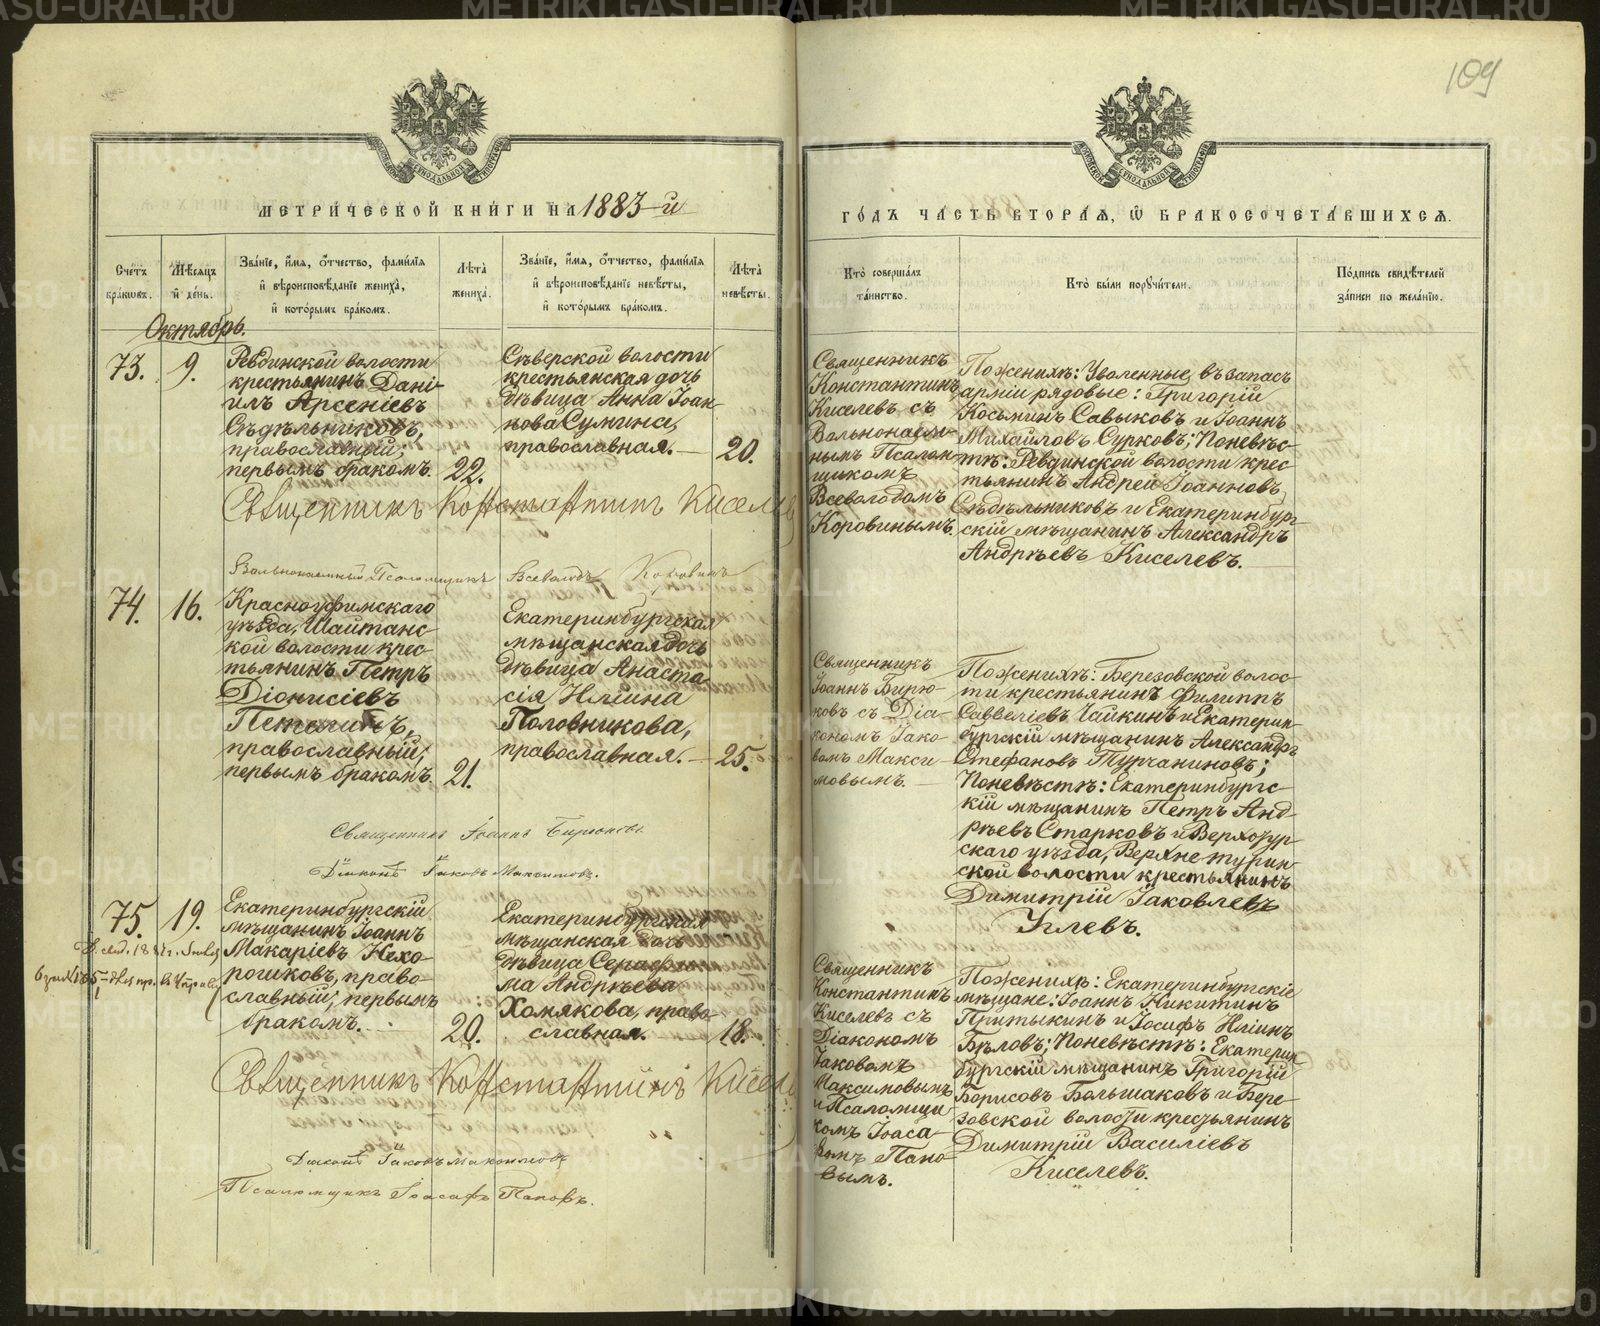 109
МЕТРИ́ЧЕСКОЙ КНИ́ГИ НА 1883-й
ГО́ДЪ ЧА́СТЬ ВТОРА́Я, Ѽ БРАКОСОЧЕТА́ВШИХСЯ.
Сче́тъ бра́кѡвъ.
Мѣ́сяцъ и҆ де́нь.
Зва́нїе, и҆́мя, ѻ҆́тчество, фами́лїя
и҆ вѣроисповѣ́данїе жениха̀,
и҆ кото́рымъ бра́комъ.
Лѣ́та жениха̀.
Зва́нїе, и҆́мя, ѻ҆́тчество, фами́лїя
и҆ вѣроисповѣ́данїе невѣ́сты,
и҆ кото́рымъ бра́комъ.
Лѣ́та невѣ́сты.
Кто̀ соверша́лъ
та́инство.
Кто̀ бы́ли поручи́тели.
По́дпись свидѣ́телей
за́писи по жела́нїю.
Октябрь.
73.
9.
Ревдинской волости
крестьянинъ Дані-
илъ Арсеніевъ
Сѣдѣльниковъ,
православный;
первымъ бракомъ.
22.
Сѣверской волости
крестьянская дочь
дѣвица Анна Іоан-
нова Сумина,
православная.—
20.
Священникъ
Константинъ
Киселевъ съ
Вольнонаем-
нымъ Псалом-
щикомъ
Всеволодомъ
Коровинымъ.
По женихѣ: Уволенные въ запасъ
арміи рядовые: Григорій
Косьминъ Савыковъ и Іоаннъ
Михайловъ Сурковъ; По невѣс-
тѣ: Ревдинской волости крес-
тьянинъ Андрей Іоанновъ
Сѣдѣльниковъ и Екатеринбург-
скій мѣщанинъ Александръ
Андреѣвъ Киселевъ.
Священникъ Константинъ Киселевъ
Вольнонаемный Псаломщикъ Всеволодъ Коровинъ
74.
16.
Красноуфимскаго
уѣзда, Шайтанс-
кой волости крес-
тьянинъ Петръ
Діонисіевъ
Петелинъ,
православный;
первымъ бракомъ.
21.
Екатеринбургская
мѣщанская дочь
дѣвица Анаста-
сія Иліина
Половникова,
православная.—
25.
Священникъ
Іоаннъ Бирю-
ковъ съ Діа-
кономъ Іако-
вомъ Макси-
мовымъ.—
По женихѣ: Березовской волос-
ти крестьянинъ Филиппъ
Савеліевъ Чайкинъ и Екатерин-
бургскій мѣщанинъ Александръ
Стефановъ Турчаниновъ;
По невѣстѣ: Екатеринбургс-
кій мѣщанинъ Петръ Анд-
рѣевъ Старковъ и Верхотур-
скаго уѣзда, Верхнетурин-
ской волости крестьянинъ
Димитрій Іаковлевъ
Углевъ.
Священникъ Іоаннъ Бирюковъ.
Діаконъ Іаковъ Максимовъ.
75.
19.
Екатеринбургскій
мѣщанинъ Іоаннъ
Макаріевъ Нехо-
рошковъ, право-
славный; первымъ
бракомъ.
20.
Екатеринбургская
мѣщанская дочь
дѣвица Серафи-
ма Андрѣева
Хомякова, право-
славная.
18.
Священникъ
Константинъ
Киселевъ съ
Діакономъ
Іаковомъ
Максимовымъ
и Псаломщи-
комъ Іоаса-
фомъ Попо-
вымъ.
По женихѣ: Екатеринбургскіе
мѣщане: Іоаннъ Никитинъ
Притыкинъ и Іосифъ Иліинъ
Бѣловъ; По невѣстѣ: Екатерин-
бургскій мѣщанинъ Григорій
Борисовъ Большаковъ и Бере-
зовской волости крестьянинъ
Димитрій Василіевъ
Киселевъ.
Священникъ Константинъ Киселе
Діаконъ Іаковъ Максимовъ
Псаломщикъ Іоасафъ Поповъ.
METRIKI.GASO-URAL.RU